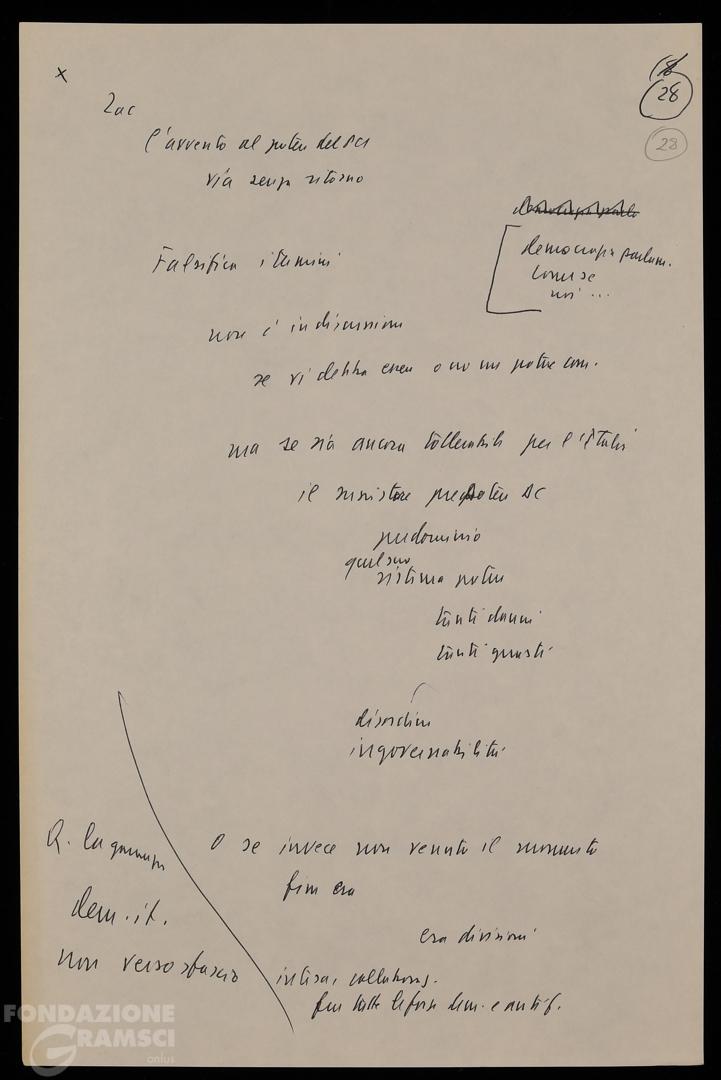 x
18
28
28
Zac
l'avvento al potere del PCI
via senza ritorno
democrazia parlam.
come se
noi ...
Falsifica i termini
non è in discussione
se vi debba essere o no un potere com.
ma se sia ancora tollerabile per l'Italia
il sussistere prepotere DC
predominio
quel suo
sistema potere
tanti danni
tanti guasti
disordine
ingovernabilità
O se invece non venuto il momento
fine era
era divisioni
intesa, collaboraz.
fra tutte le forze dem. e antif.
Q. la garanzia
dem. it.
non verso sfascio
FONDAZIONE
GRAMSCI
onlus